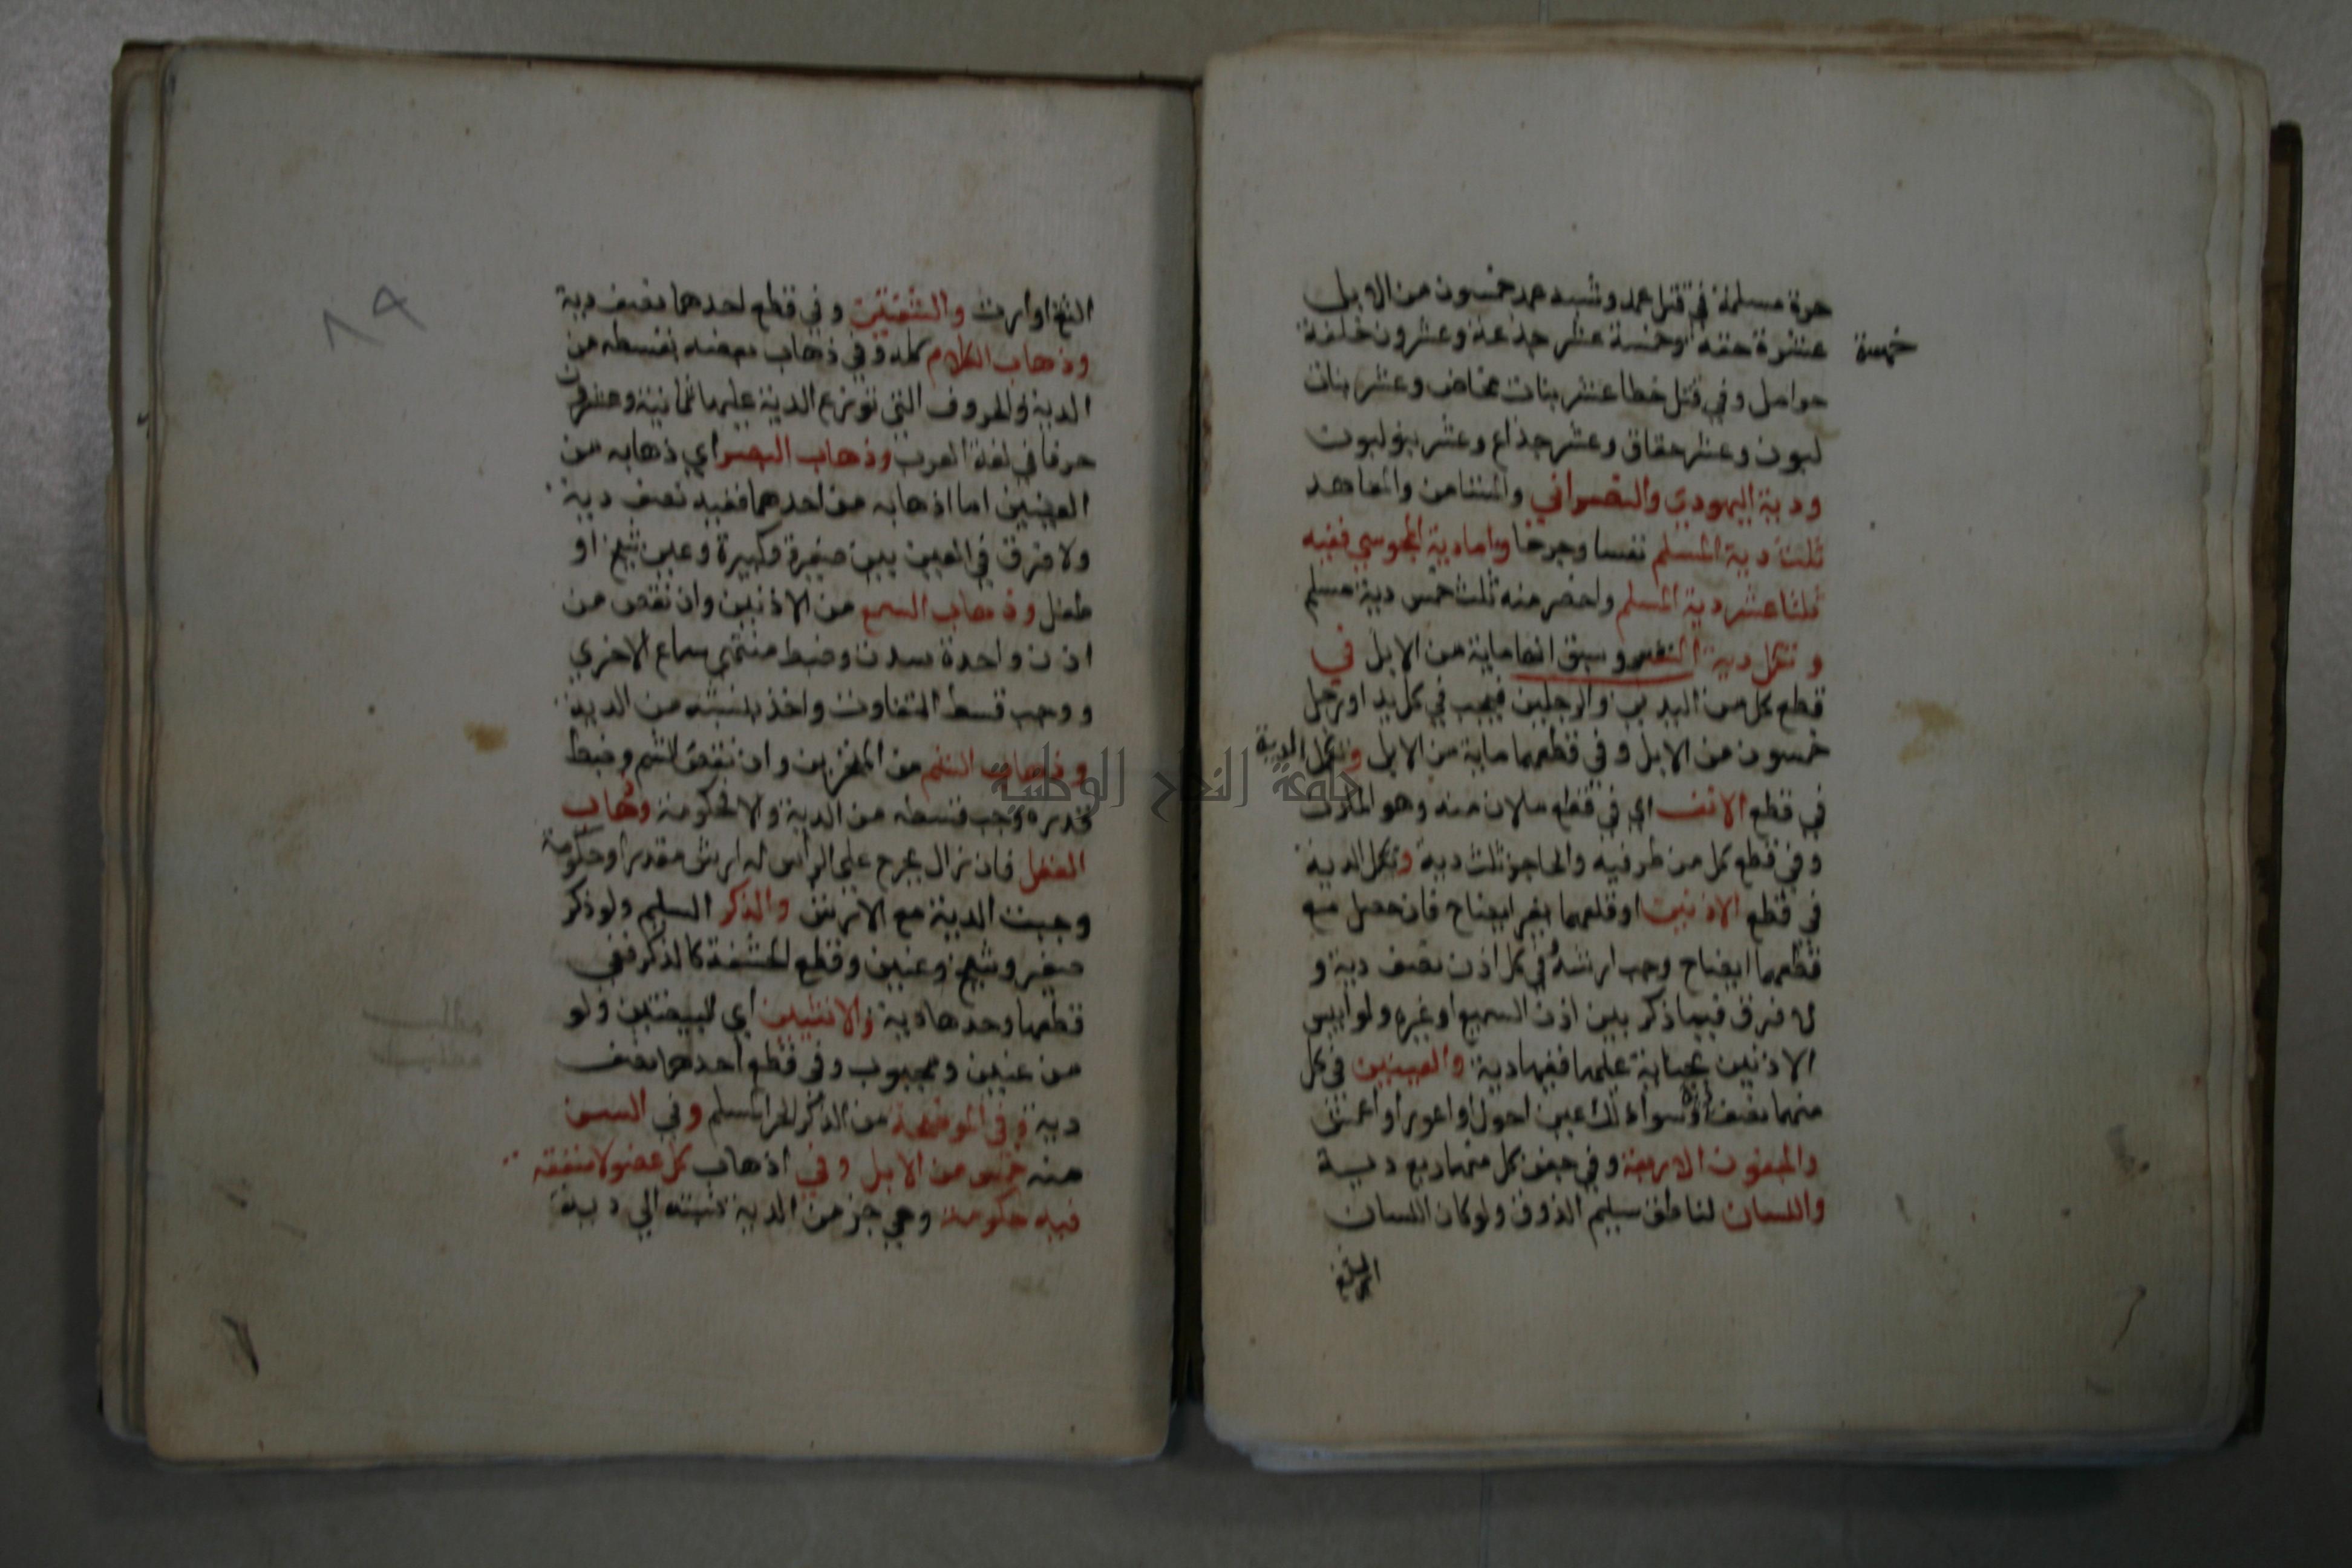 حرة مسلمة في قتل عمد وشبه عمد خمسون من الابل
خمسة
عشرة حقه وخمسة عشر جذعة وعشرون خلفة
حوامل وفي قتل خطا عشر بنات مخاض وعشر بنات
لبون وعشر حقاق وعشر جذاع وعشر بنو لبون
ودية اليهودي والنصراني والمستامن والمعاهد
ثلث دية المسلم نفسا وجرحا واما دية المجوسي ففيه
ثلثا عشر دية المسلم واخصر منه ثلث خمس دية مسلم
وتكمل دية النفس وسبق انها ماية من الابل في
قطع كل من اليدين والرجلين فيجب في كل يد او رجل
خمسون من الابل وفي قطعهما ماية من الابل وتكمل الدية
في قطع الانف اي في قطع ما لان منه وهو المارن
وفي قطع كل من طرفيه والحاجز ثلث دية وتكمل الدية
في قطع الاذنين او قلعهما بغير ايضاح فان حصل مع
قطعهما ايضاح وجب ارشه في كل اذن نصف دية و
لا فرق فيما ذكر بين اذن السميع او غيره ولو ايبس
الاذنين بجناية عليهما ففيها دية والعينين في كل
منهما نصف دية وسواء ذلك عين احول او اعور او اعمش
والجفون الاربعة وفي جفن كل منها ربع دية
واللسان لناطق سليم الذوق ولو كان اللسان
الثغ او ارت والشفتين وفي قطع احدهما نصف دية
وذهاب الكلام كله وفي ذهاب بعضه بقسطه من
الدية والحروف التي توزع الدية عليها ثمانية وعشرون
حرفا في لغة العرب وذهاب البصر اي ذهابه من
العينين اما اذهابه من احدهما ففيه نصف دية
ولا فرق في العين بين صغيرة وكبيرة وعين شيخ او
طفل وذهاب السمع من الاذنين وان نقص من
اذن واحدة سدت وضبط منتهى سماع الاخري
ووجب قسط التفاوت واخذ بنسبته من الدية
وذهاب الشم من المنخرين وان نقص الشم وضبط
قدره وجب قسطه من الدية والا فحكومة وذهاب
العقل فان زال بجرح علي الراس له ارش مقدر او حكومة
وجبت الدية مع الارش والذكر السليم ولو ذكر
صغير وشيخ وعنين وقطع الحشفة كالذكر ففي
قطعها وحدها دية والانثيين اي البيضتين ولو
من عنين ومجبوب وفي قطع احدهما نصف
دية وفي الموضحة من الذكر الحر المسلم وفي السن
منه خمس من الابل وفي اذهاب كل عضو لا منفعة
فيه حكومة وهي جز من الدية نسبته الي دية
٨٩
جامعة النجاح الوطنية